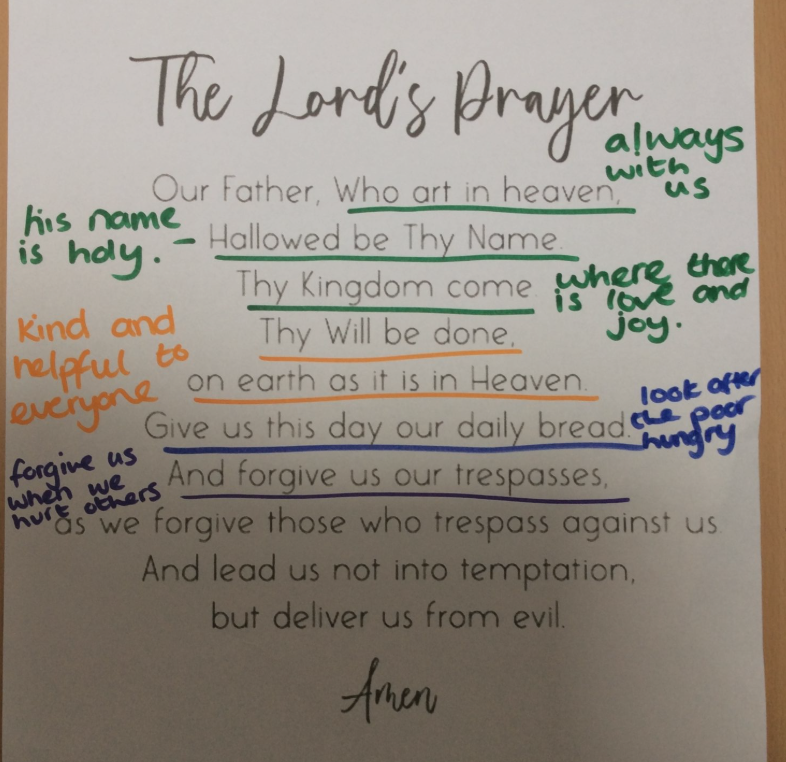 The Lord's Prayer
always
with
us
Our Father, Who art in heaven,
his name
is holy. -
Hallowed be Thy Name.
Thy Kingdom come
where there
is love and
joy.
Kind and
helpful to
everyone
Thy Will be done,
on earth as it is in Heaven.
Give us this day our daily bread.
look after
the poor
hungry
forgive us
when we
hurt others
And forgive us our trespasses,
as we forgive those who trespass against us.
And lead us not into temptation,
but deliver us from evil.
Amen